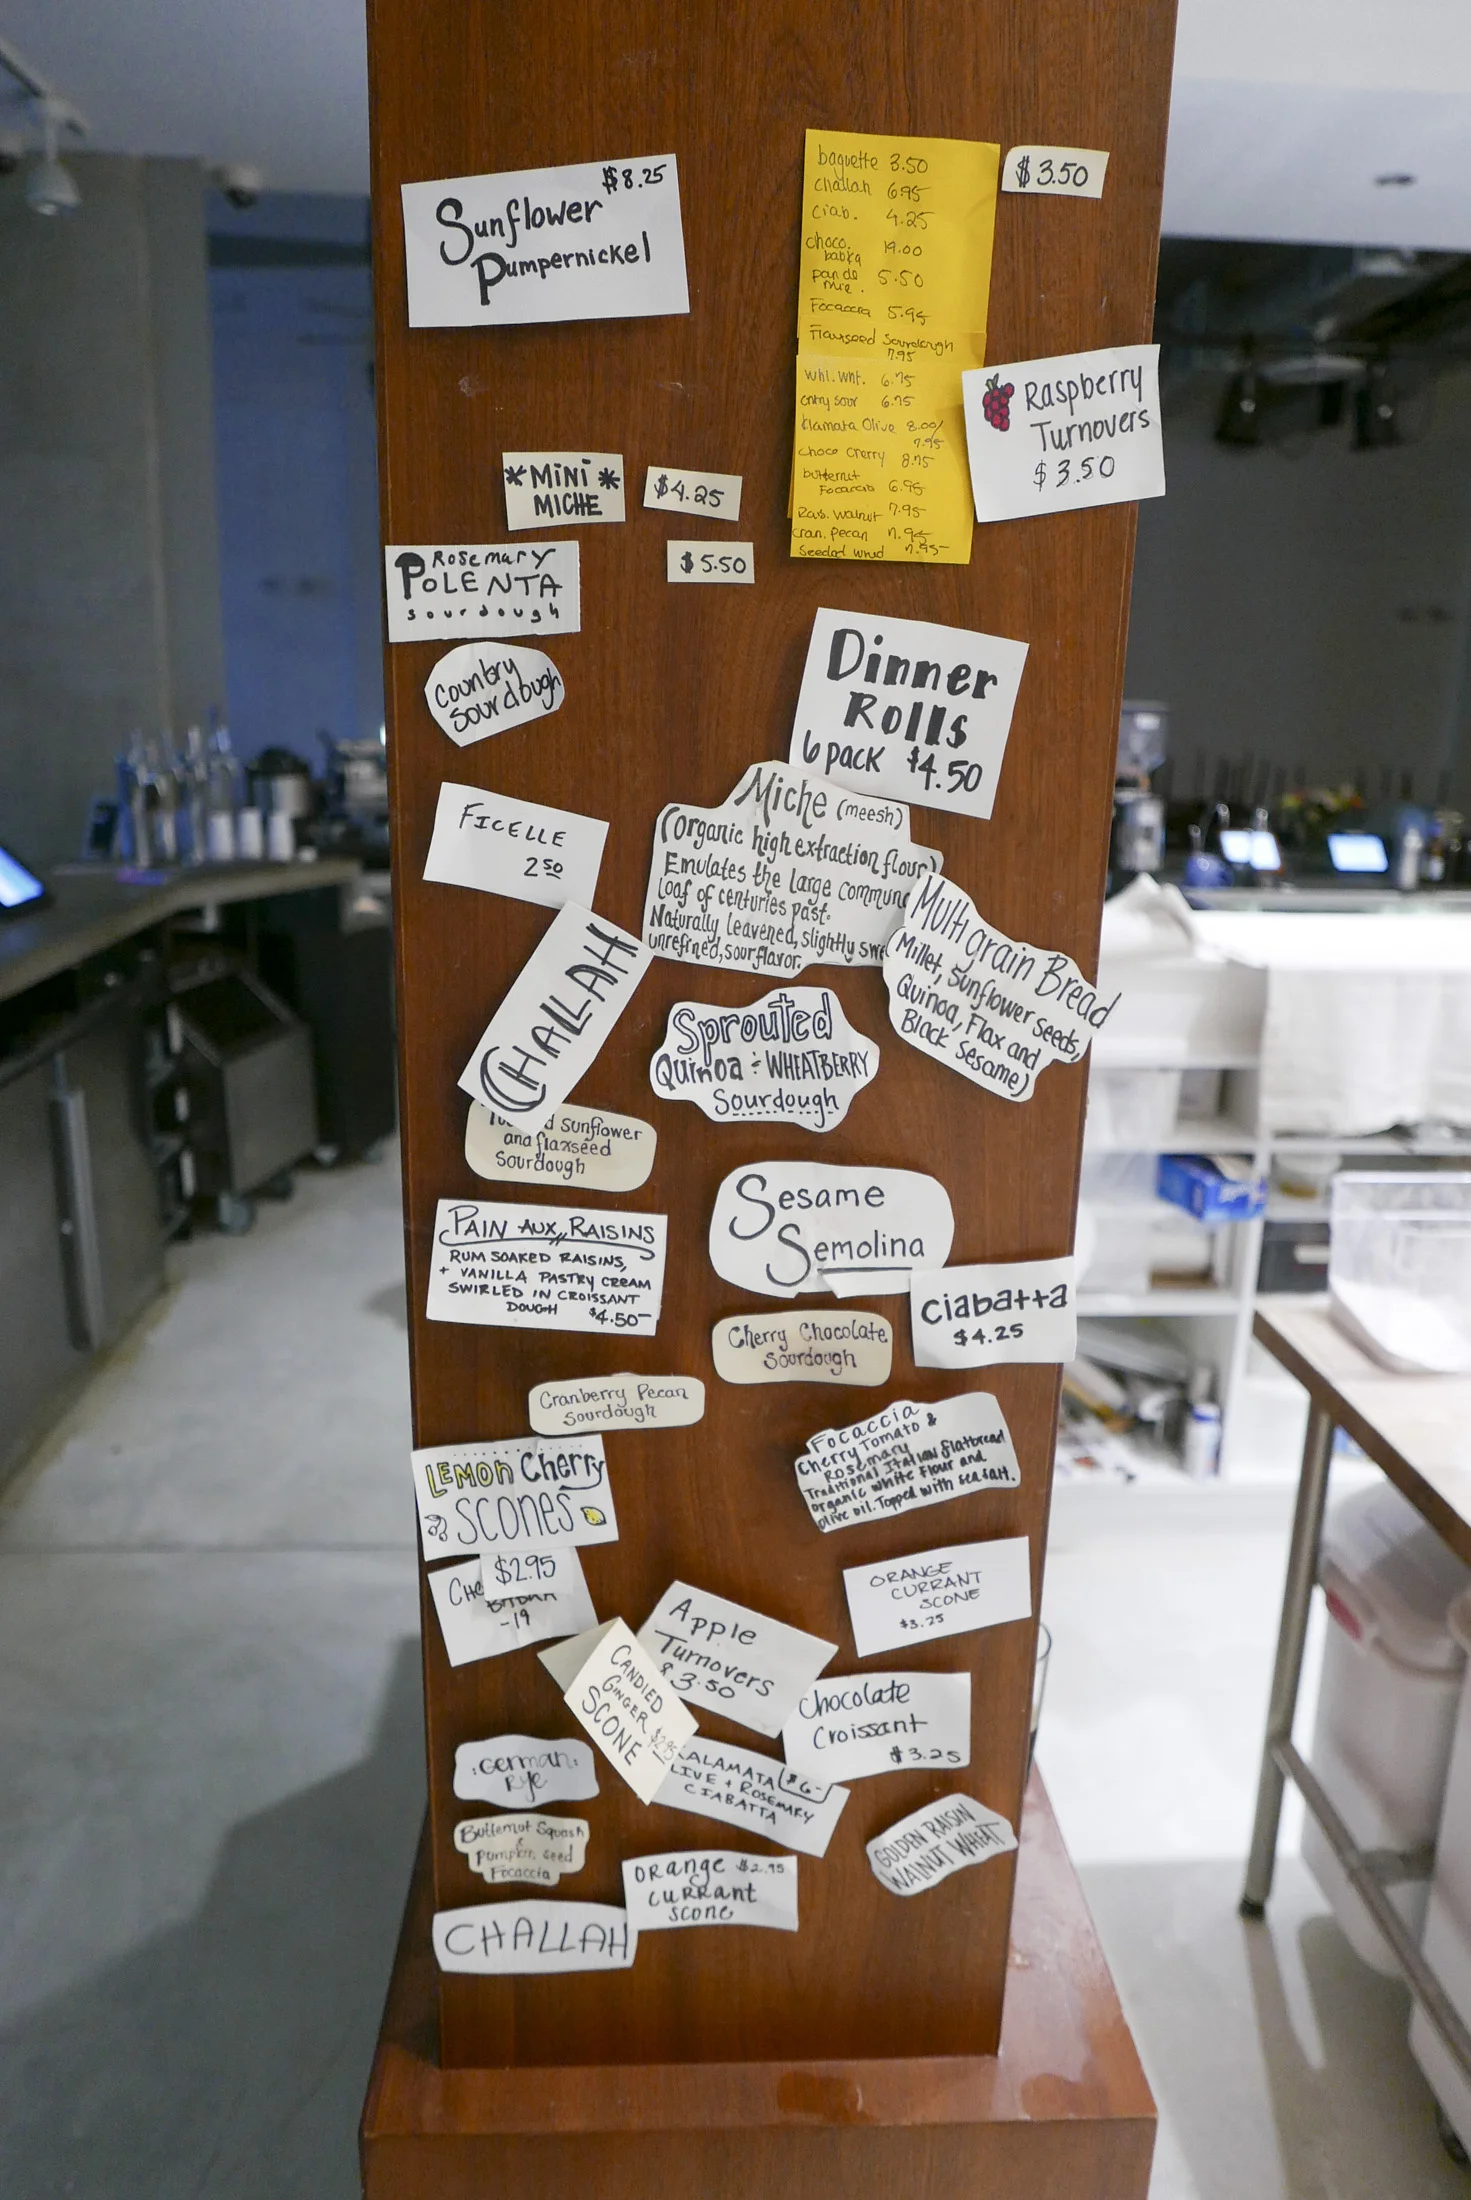 $8.25
Sunflower
Pumpernickel
baguette 3.50
challah 6.95
ciab. 4.25
choco. babka 19.00
pan de mie. 5.50
Focaccia 5.95
Flaxseed Sourdough
7.95
whl. wht. 6.75
cntry sour 6.75
klamata Olive 8.00/
7.95
choco cherry 8.75
butternut
Focaccia 6.95
Rais. walnut 7.95
cran. pecan 7.95
seeded 7.95
$3.50
Raspberry
Turnovers
$3.50
*MiNi*
MICHE
$4.25
Rosemary
POLENTA
sourdough
$5.50
country
sourdough
Dinner
Rolls
6 pack $4.50
FICELLE
2 50
Miche (meesh)
(Organic high extraction flour)
Emulates the large commun
loaf of centuries past.
Naturally leavened, slightly swe
unrefined, sour flavor.
Multigrain Bread
Millet, Sunflower seeds,
Quinoa, Flax and
Black Sesame)
CHALLAH
Sprouted
Quinoa ÷ WHEATBERRY
Sourdough
d sunflower
and flaxseed
sourdough
Sesame
Semolina
PAIN AUX RAISINS
RUM SOAKED RAISINS,
+ VANILLA PASTRY CREAM
SWIRLED IN CROISSANT
DOUGH $4.50
Ciabatta
$4.25
Cherry Chocolate
Sourdough
Cranberry Pecan
Sourdough
Focaccia
Cherry Tomato &
Rosemary
Traditional Italian flatbread
organic white flour and
olive oil. Topped with sea salt.
LEMON Cherry
SCONES
$2.95
CHO
BABKA
-19
ORANGE
CURRANT
SCONE
$3.25
Apple
Turnovers
$3.50
CANDIED
GINGER
SCONE $2.95
Chocolate
Croissant
$3.25
ALAMATA $6-
LIVE + ROSEMARY
CIABATTA
:German:
Rye
Butternut Squash
&
pumpkin seed
Focaccia
GOLDEN RAISIN
WALNUT WHEAT
orange $2.95
&
currant
scone
CHALLAH